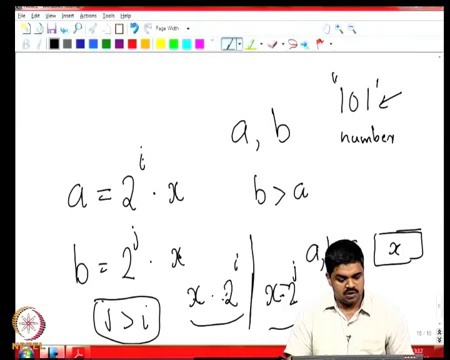 File Edit View Insert Actions Tools Help
Page Width
"101"
a, b
number
a = 2^i · x
b > a
b = 2^j · x
a, b
x
j > i
x · 2^i
x = 2^j